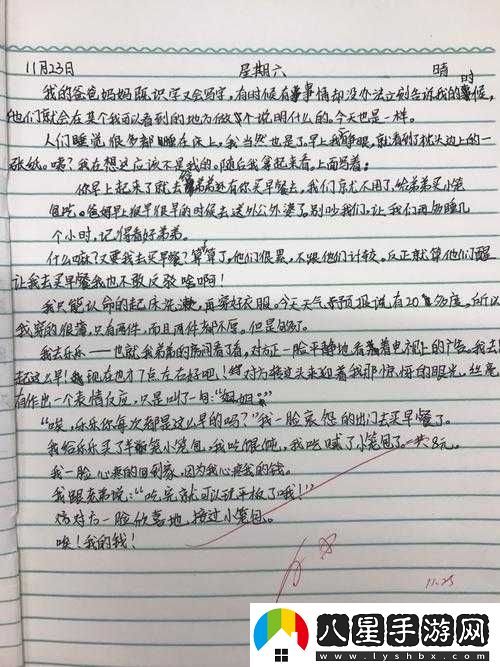 11月23日 星期六 晴
我的爸爸妈妈既识字又会写字,有时候有事情却没办法立刻告诉我的时候,
他们就会在某个我可以看到的地方做个说明什么的。今天也是一样。
人们睡觉很多都睡在床上,我当然也是了。早上我睁眼,就看到了枕头边上的一
张纸。咦?我在想这应该不是我的。随后我拿起来看,上面写着:
你早上起来了就去给弟弟还有你买早餐去,我们就不用了,给弟弟买小笼
包吃。爸妈早上很早很早的时候去送外公外婆了。别吵我们,让我们再多睡几
个小时,记得看好弟弟。
什么嘛?又要我去买早餐?算了算了,他们很累,不跟他们计较。反正就算他们醒
让我去买早餐我也不敢反驳啥啊!
我只能认命的起床洗漱,再穿好衣服。今天天气预报说有20多度,所以
我穿的很薄,只有两件,而且两件都不厚。但是够了。
我去乐乐——也就我弟弟的房间看了看,对方正一脸平静地看着电视上的广告。我去!
起这么早!我现在也才7点左右好吧!对方接过头来迎着我那惊悔的眼光,丝毫
有作出一个表情反应,只是叫了一句:“姐姐。”
“唉,乐乐你每次都是这么早的吗?”我一脸哀怨的出门去买早餐了。
我给乐乐买了半笼小笼包,我吃馄饨,我吃腻了小笼包了。一共8元。
我一脸心疼的回到家,因为我心疼我的钱。
我跟弟弟说:“吃完就可以玩平板了哦!”
对方一脸欣喜地,接过小笼包。
唉!我的钱!
11.25
八星手游网
www.lyshbx.com